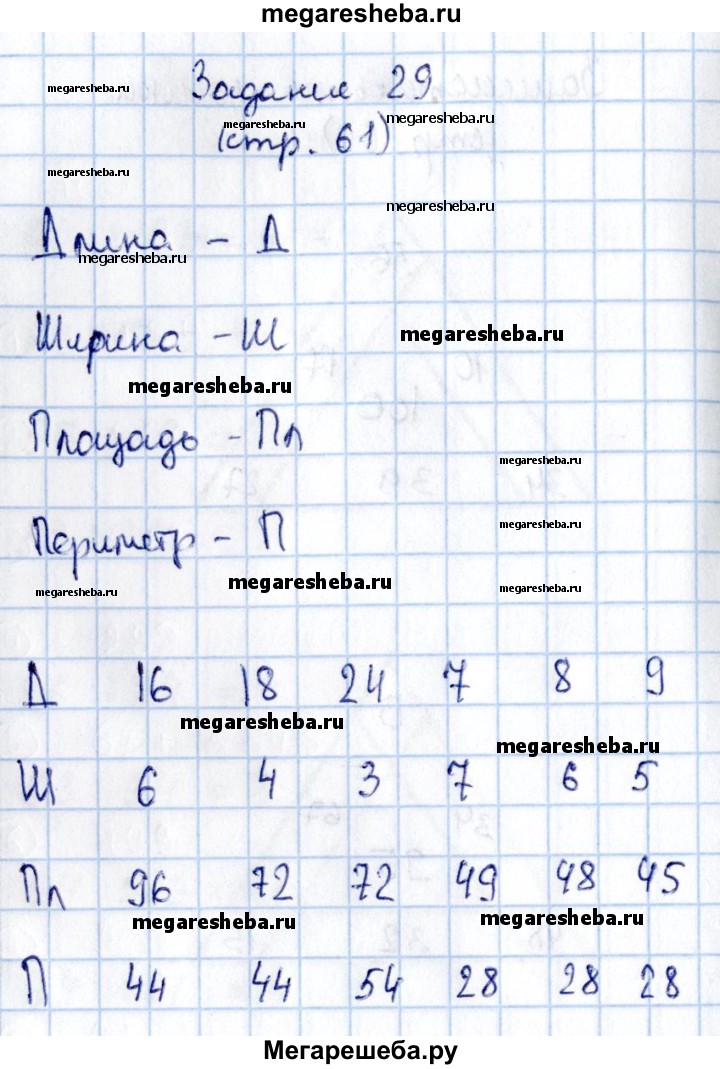 megaresheba.ru
Задание 29
megaresheba.ru
megaresheba.ru
megaresheba.ru
(стр. 61)
megaresheba.ru
megaresheba.ru
Длина - Д
megaresheba.ru
Ширина - Ш
megaresheba.ru
megaresheba.ru
Площадь - Пл
megaresheba.ru
Периметр - П
megaresheba.ru
megaresheba.ru
megaresheba.ru
megaresheba.ru
Д 16 18 24 7 8 9
megaresheba.ru
megaresheba.ru
Ш 6 4 3 7 6 5
Пл 96 72 72 49 48 45
megaresheba.ru
megaresheba.ru
П 44 44 54 28 28 28
Мегарешеба.ру